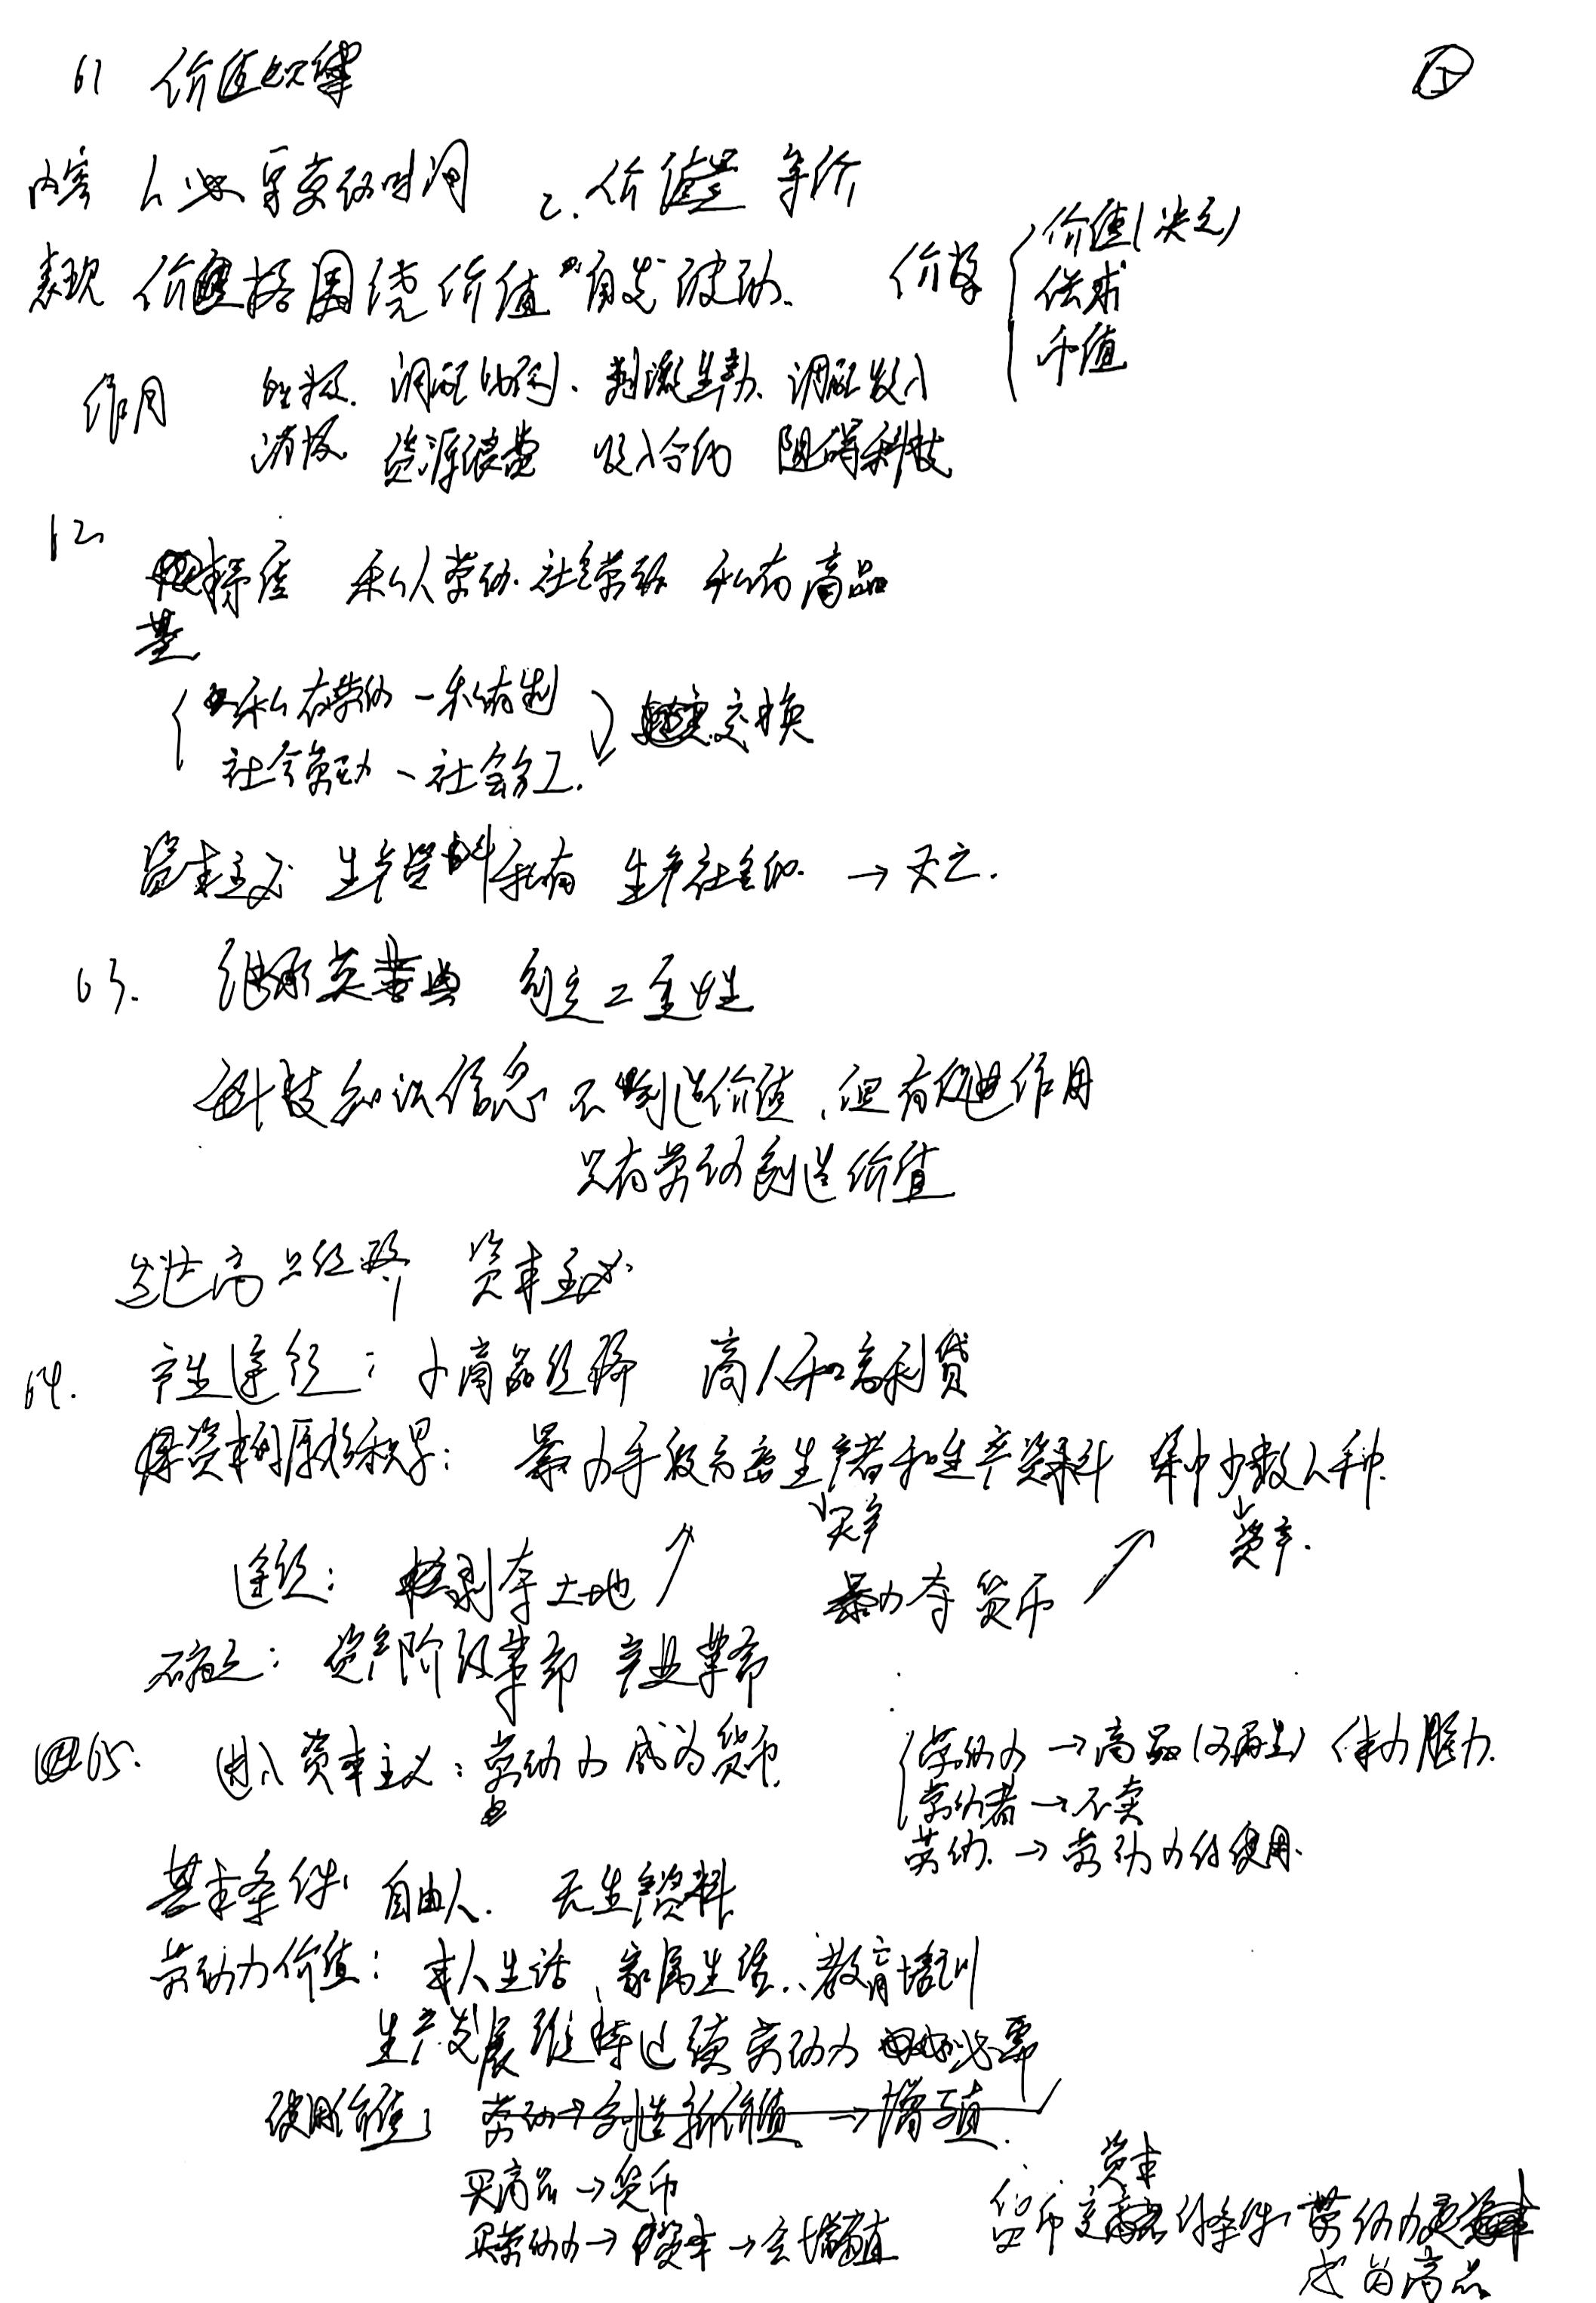 61 价值规律
内容 1. 必要劳动时间 2. 价值量 等价
表现 价格围绕价值自发波动. 价格 价值(决定)
供求
币值
作用 积极. 调配比例、刺激生力、调配收入
消极 资源浪费 收入分化 阻碍科技
62
私人劳动. 社会劳动 私有商品
基
私有劳动 - 私有制
社会劳动 - 社会分工. 交换
资本主义 生产资料私有 生产社会化. → 灭亡.
63. 继承英古典 创立二重性
科技知识信息不创造价值,但有促进作用
只有劳动创造价值
发达商品经济 资本主义
64. 产生途径: 小商品经济 商人和高利贷
资本原始积累: 暴力手段 生产者和生产资料 集中少数人手中.
无产
资产.
途径: 剥夺土地 暴力夺货币
确立: 资产阶级革命 产业革命
65. 进入资本主义: 劳动力成为货币
劳动力 → 商品(可再生) 体力脑力.
劳动者 → 不卖
劳动. → 劳动力的使用.
基本条件 自由人. 无生产资料
劳动力价值: 本人生活、家属生活、教育培训
生产发展维持延续劳动力必要
使用价值: 劳动 → 创造新价值 → 增殖.
买商品 → 货币
买劳动力 → 资本 → 会增值
货币变资本的条件 劳动力
成为商品